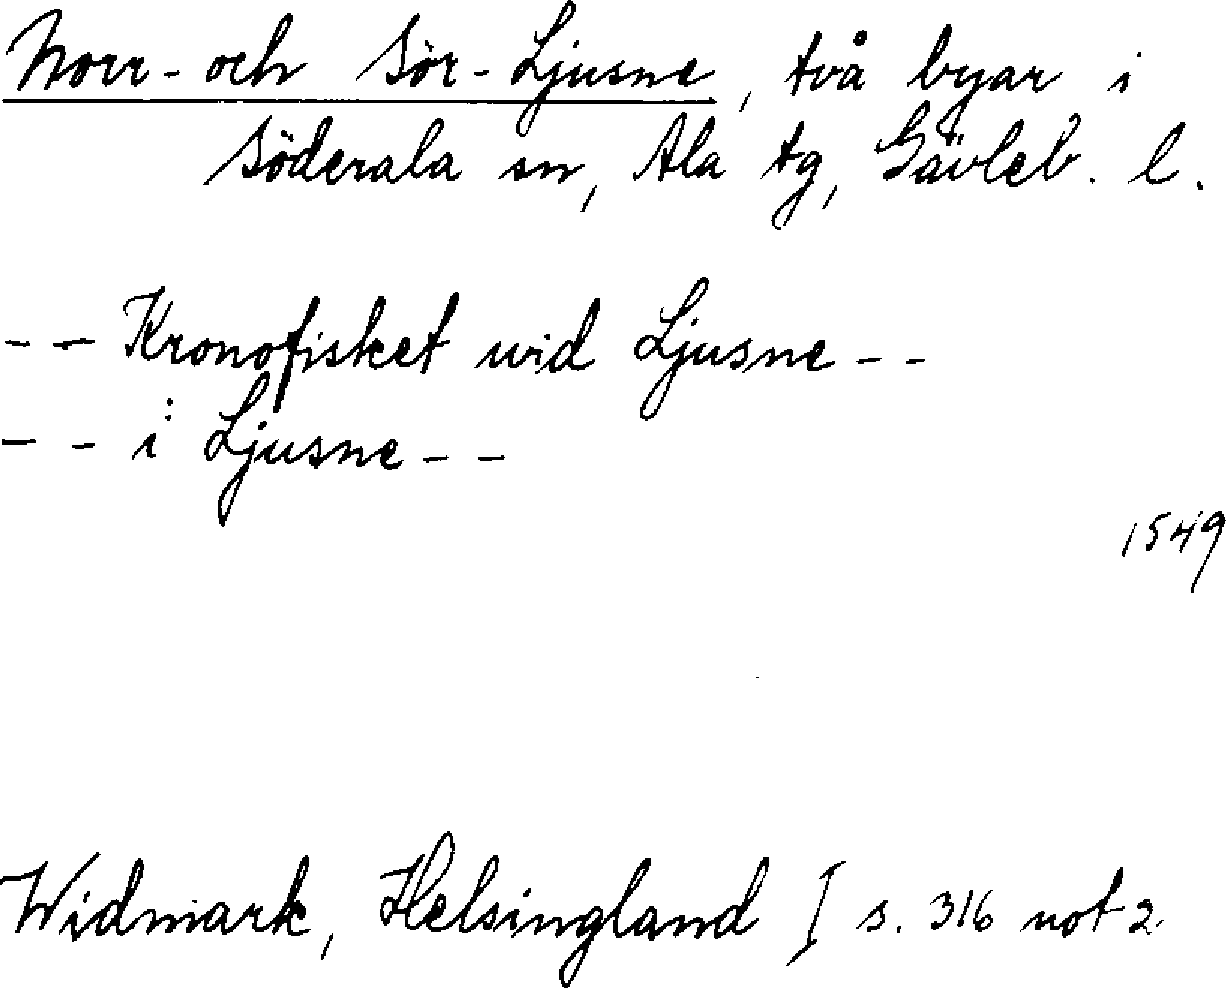 Norr- och Sör-Ljusne, två byar i
Söderala sn, Ala tg, Gävleb. l.
-- Kronofisket wid Ljusne --
-- i Ljusne --
1549
Widmark, Helsingland I s. 316 not 2